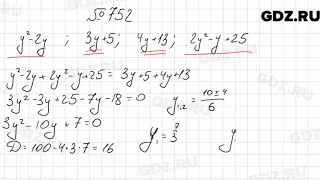 GDZ.RU
№752
y²-2y ; 3y+5; 4y+13; 2y²-y+25
y²-2y+2y²-y+25 = 3y+5+4y+13
3y²-3y+25-7y-18=0
3y²-10y+7=0
D=100-4·3·7=16
y₁,₂ = (10±4)/6
y₁ = 7/3 y